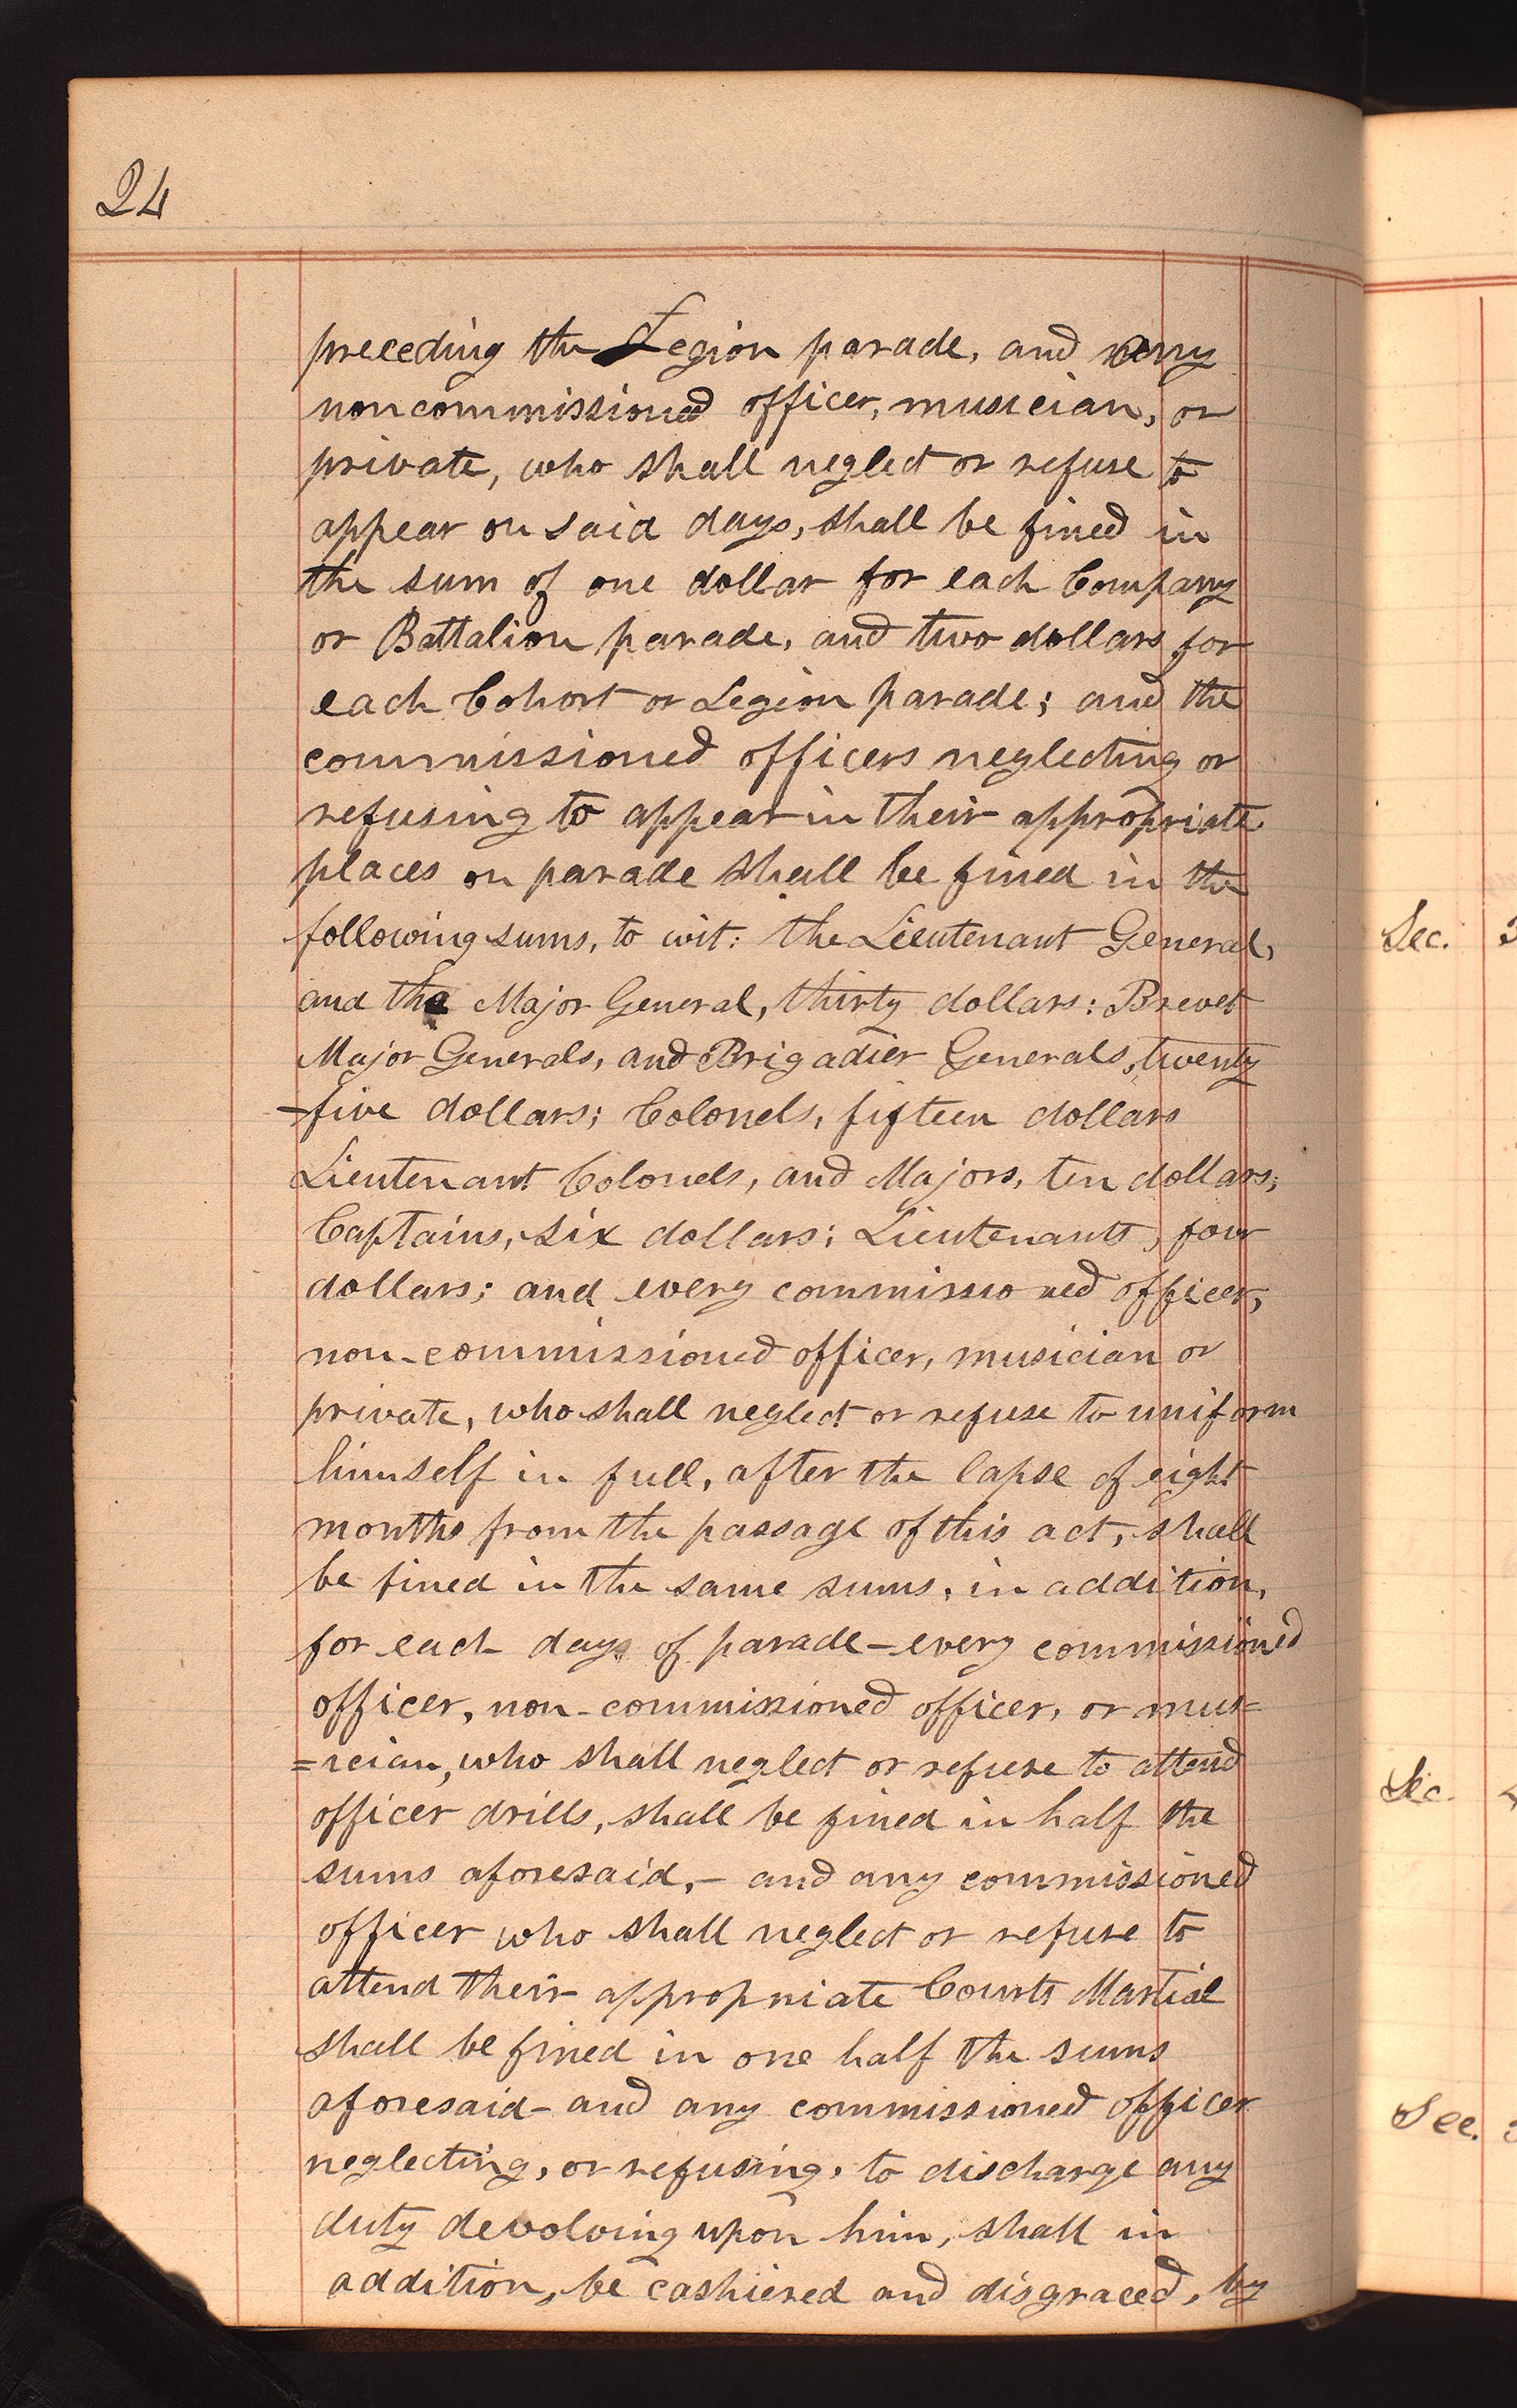 24
preceding the Legion parade, and any
noncommissioned officer, musician, or
private, who shall neglect or refuse to
appear on said days, shall be fined in
the sum of one dollar for each Company
or Battalion parade, and two dollars for
each Cohort or Legion parade; and the
commissioned officers neglecting or
refusing to appear in their appropriate
places on parade shall be fined in the
following sums, to wit: the Lieutenant General,
and the Major General, thirty dollars: Brevet
Major Generals, and Brigadier Generals, twenty
-five dollars; Colonels, fifteen dollars
Lieutenant Colonels, and Majors, ten dollars;
Captains, six dollars; Lieutenants, four
dollars; and every commissioned officer,
non-commissioned officer, musician or
private, who shall neglect or refuse to uniform
himself in full, after the lapse of eight
months from the passage of this act, shall
be fined in the same sums, in addition,
for each days of parade - every commissioned
officer, non-commissioned officer, or mus=
=ician, who shall neglect or refuse to attend
officer drills, shall be fined in half the
sums aforesaid, - and any commissioned
officer who shall neglect or refuse to
attend their appropriate Courts Martial
shall be fined in one half the sums
aforesaid - and any commissioned officer
neglecting, or refusing, to discharge any
duty devolving upon him, shall in
addition, be cashiered and disgraced, by
Sec.
Sec.
Sec.